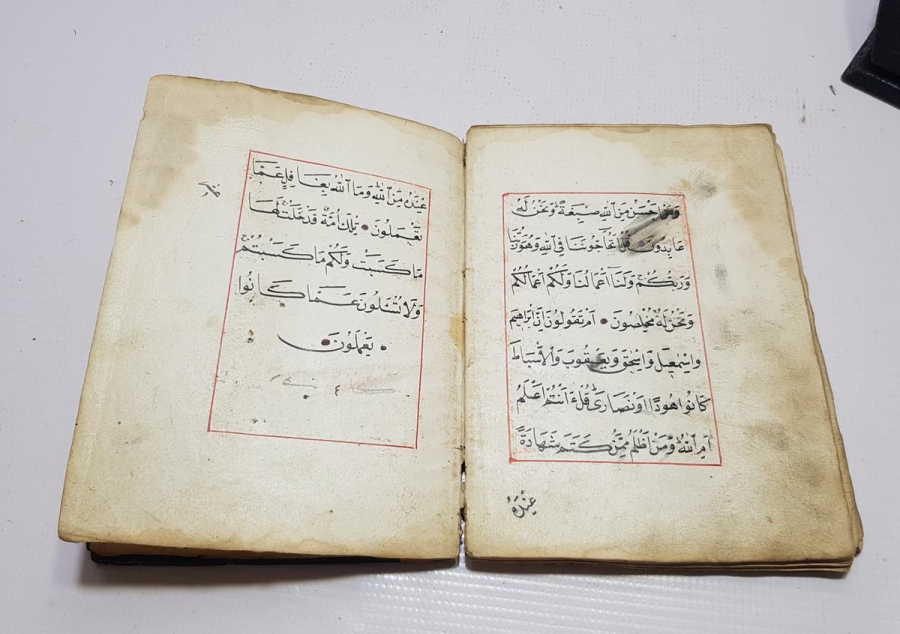 ومن احسن من الله صبغة ونحن له
عابدون قل اتحاجوننا في الله وهو ربنا
وربكم ولنا اعمالنا ولكم اعمالكم
ونحن له مخلصون ام تقولون ان ابراهيم
واسمعيل واسحق ويعقوب والاسباط
كانوا هودا او نصارى قل ءانتم اعلم
ام الله ومن اظلم ممن كتم شهادة
عنده
عنده من الله وما الله بغافل عما
تعملون تلك امة قد خلت لها
ما كسبت ولكم ما كسبتم
ولا تسئلون عما كانوا
يعملون